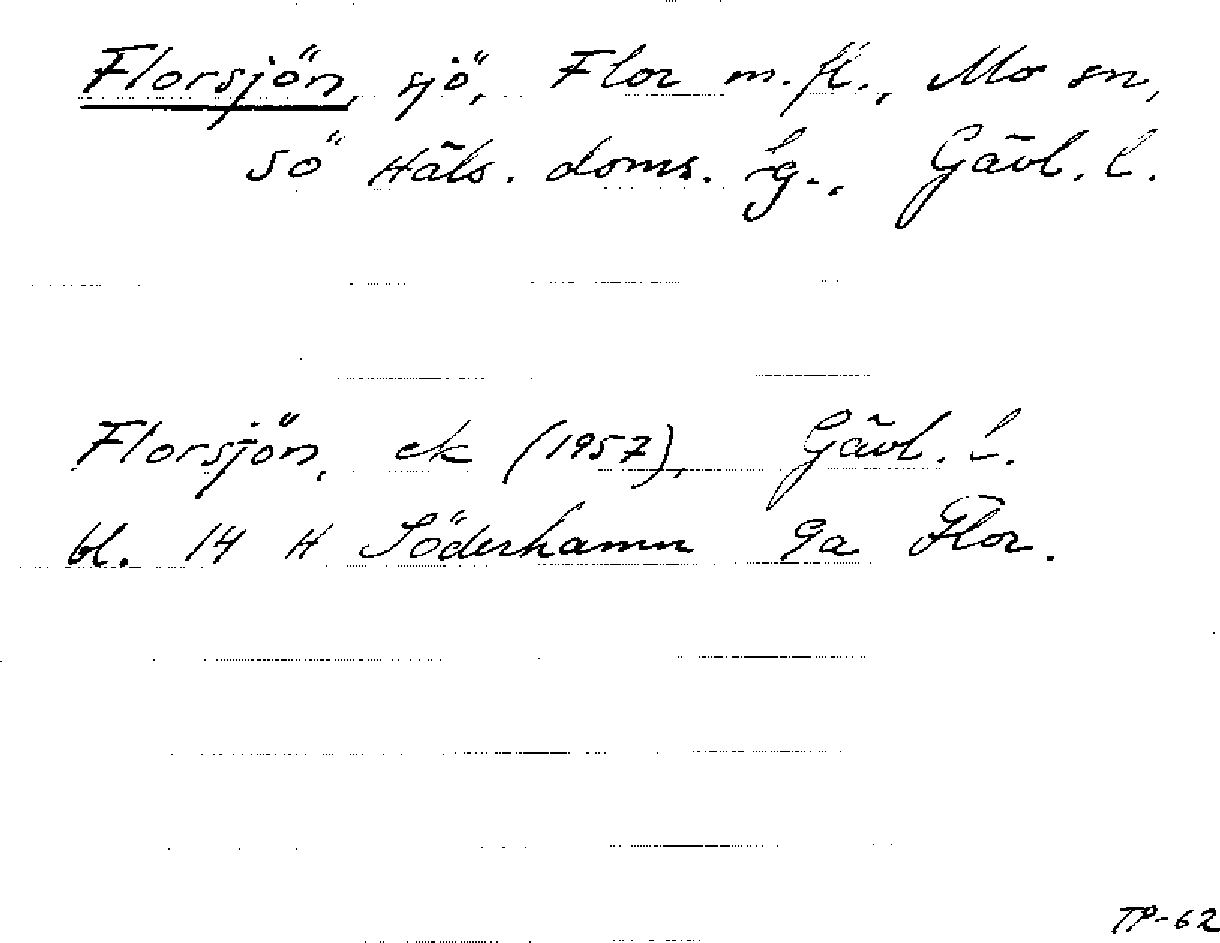 Florsjön, sjö, Flor m.fl., Mo sn,
Sö Häls. doms. sg., Gävl. l.
Florsjön, ek (1957), Gävl. l.
bl. 14 H Söderhamn 9a Flor.
TP-62